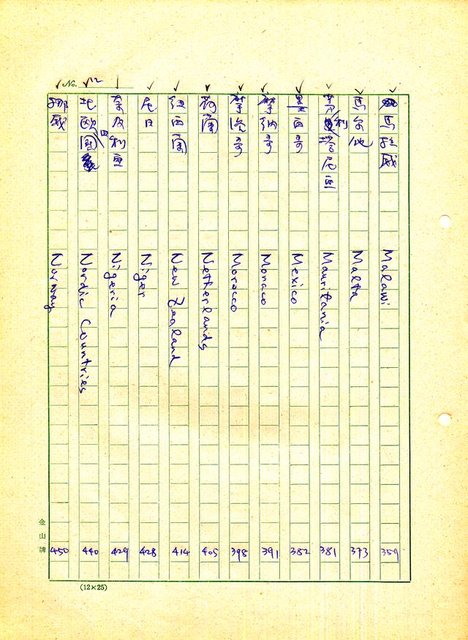 No. 12
馬拉威 Malawi 359
馬爾他 Malta 373
茅利塔尼亞 Mauritania 381
墨西哥 Mexico 382
摩納哥 Monaco 391
摩洛哥 Morocco 398
荷蘭 Netherlands 405
紐西蘭 New Zealand 414
尼日 Niger 428
奈及利亞 Nigeria 429
北歐四國 Nordic Countries 440
挪威 Norway 450
金山牌
(12×25)